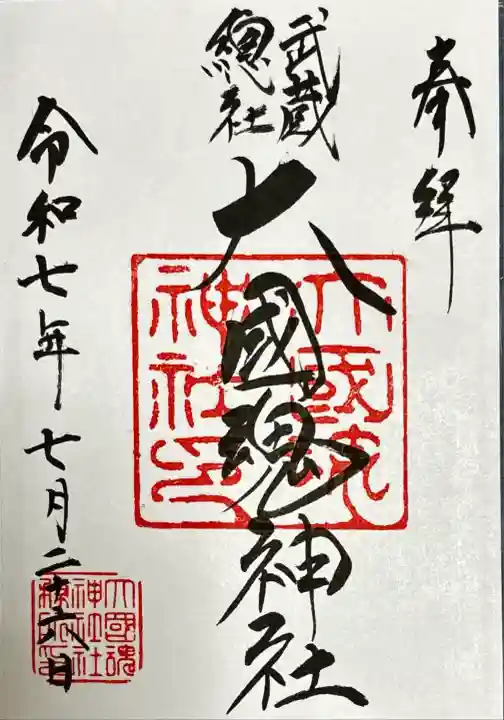 奉拝
武蔵
總社
大國魂神社
令和七年七月二十六日
大國魂
神社印
大國魂
神社